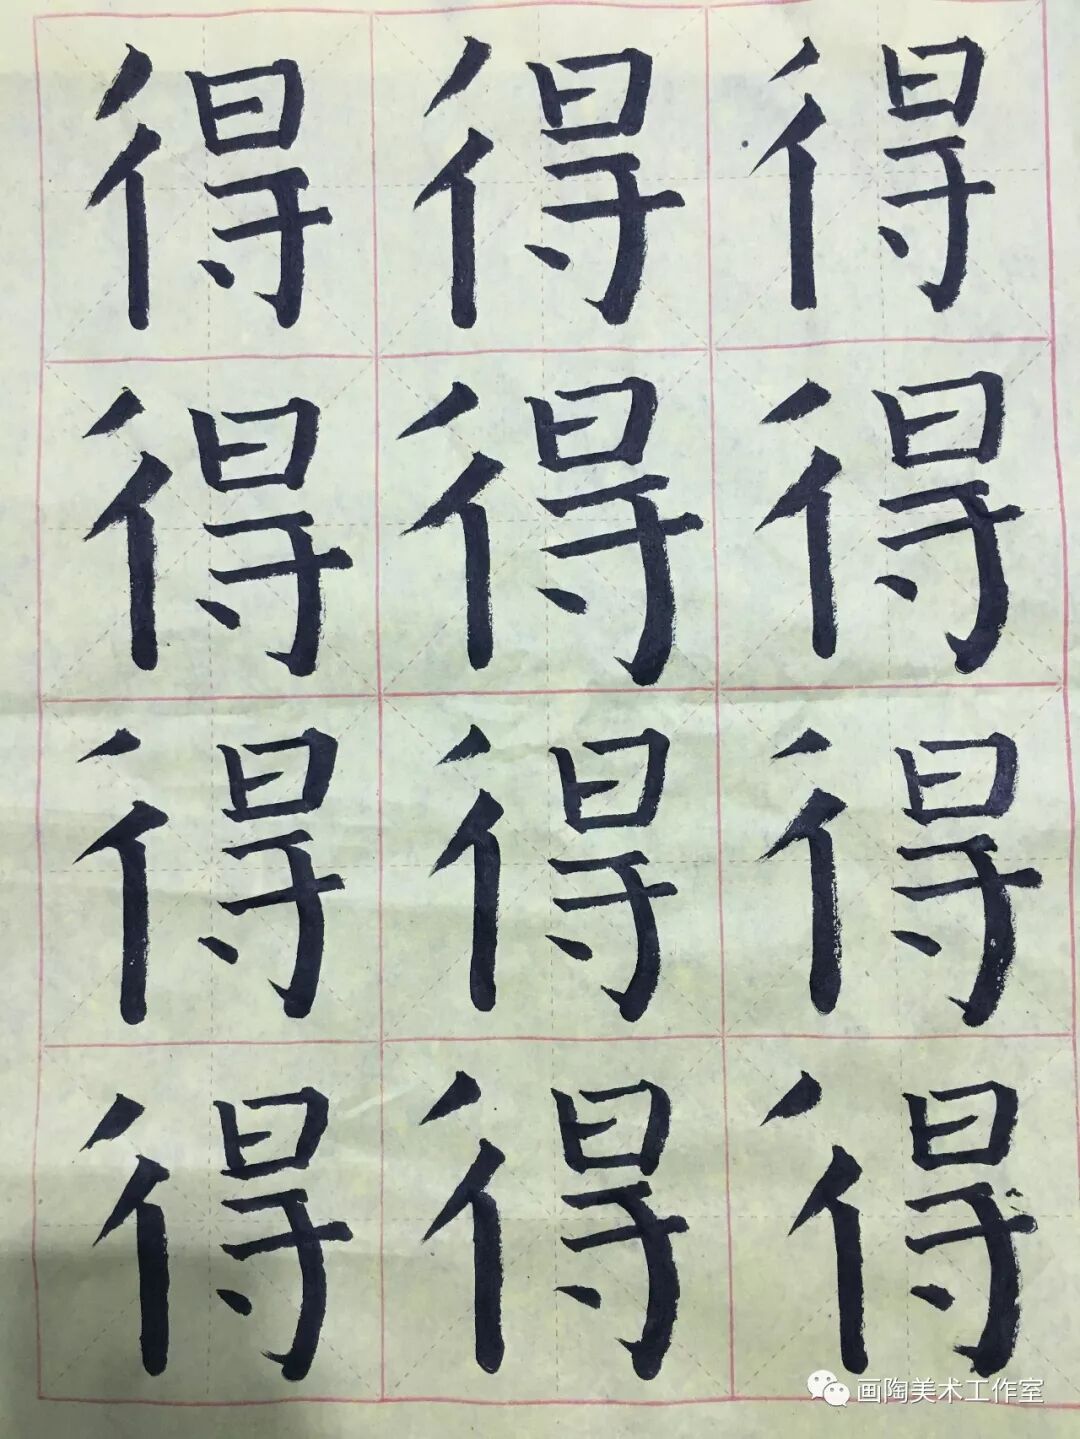 得得得
得得得
得得得
得得得
画陶美术工作室